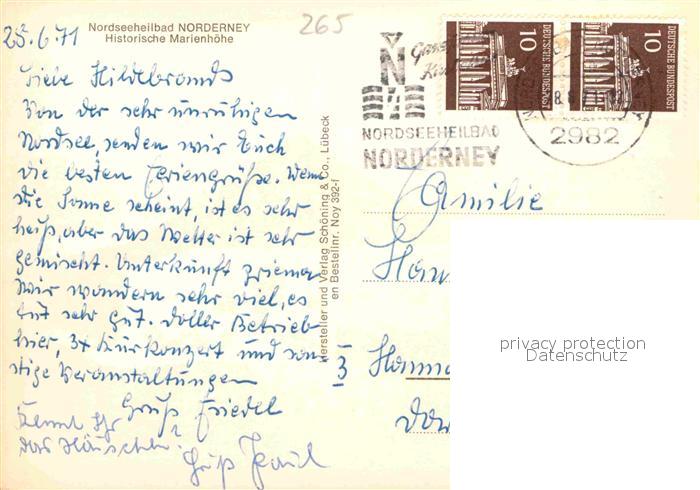 Nordseeheilbad NORDERNEY
Historische Marienhöhe
265
28.6.71
Liebe Hildebrands
Von der sehr unruhigen
Nordsee, senden wir Euch
die besten Feriengrüße. Wenn
die Sonne scheint, ist es sehr
heiß, aber das Wetter ist sehr
gemischt. Unterkunft prima
Wir wandern sehr viel, es
tut sehr gut. Doller Betrieb
hier, 3x Kurkonzert und son-
stige Veranstaltungen
Gruß Friedel
Kennt Ihr
das Häuschen?
Gruß Paul
Hersteller und Verlag Schöning & Co., Lübeck
en Bestellnr. Noy 392-f
N
NORDSEEHEILBAD
NORDERNEY
10
DEUTSCHE BUNDESPOST
10
DEUTSCHE BUNDESPOST
2982
Familie
3
privacy protection
Datenschutz